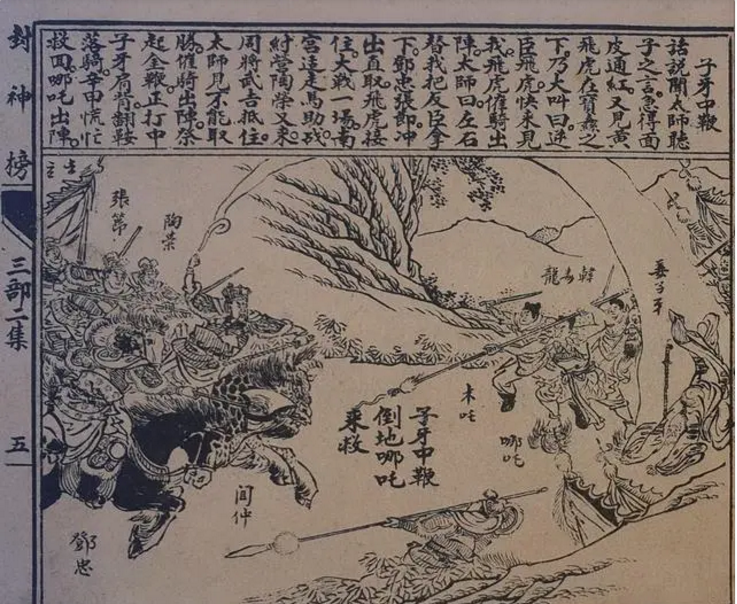 子牙中鞭
話說聞太師聽
子之言。急得面
皮通紅。又見黃
飛虎在寶纛之
下。乃大叫曰。逆
臣飛虎。快來見
我。飛虎催騎出
陣。太師曰。左右
替我把反臣拿
下。鄧忠張節冲
出。直取飛虎。接
住。大戰一場。南
宮适走馬助战。
紂營陶榮又來。
周將武吉抵住。
太師見不能取
勝。催騎出陣。祭
起金鞭。正打中
子牙肩背。翻鞍
落騎。辛甲慌忙
救回。哪吒出陣。
姜子牙
韓毒龍
木吒
哪吒
子牙中鞭
倒地哪吒
來救
陶榮
張節
聞仲
鄧忠
封神榜
三部二集
五